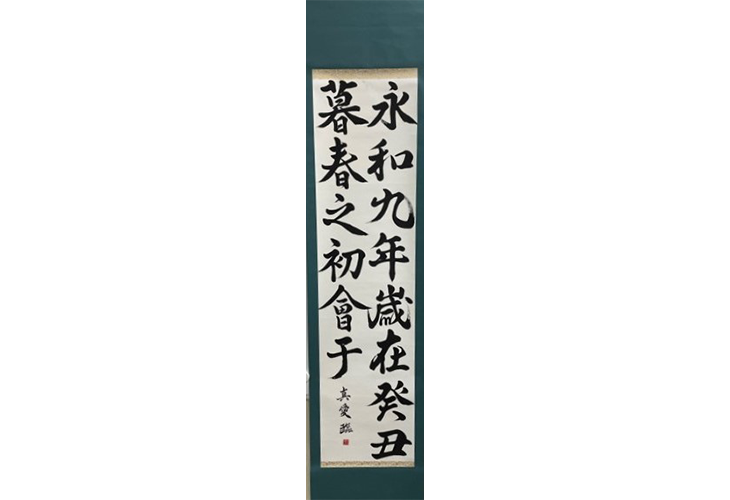 永和九年歳在癸丑
暮春之初會于
真愛臨